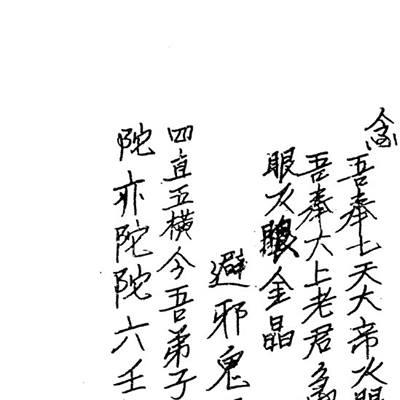 念
吾奉七天大帝火眼
吾奉大上老君急
眼火眼金晶
避邪鬼
四直五横今吾弟子
陀亦陀陀六壬